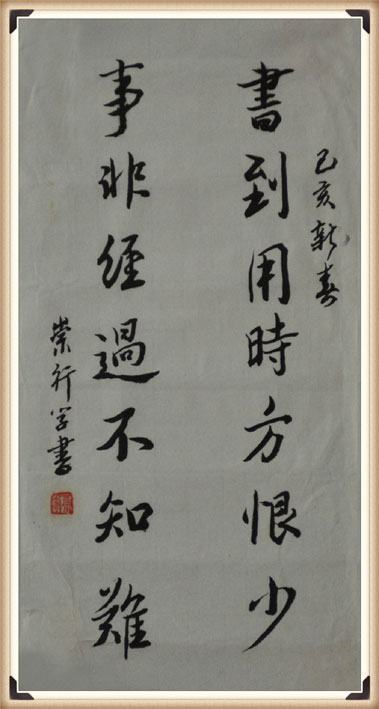 己亥新春
書到用時方恨少
事非經過不知難
崇行学書